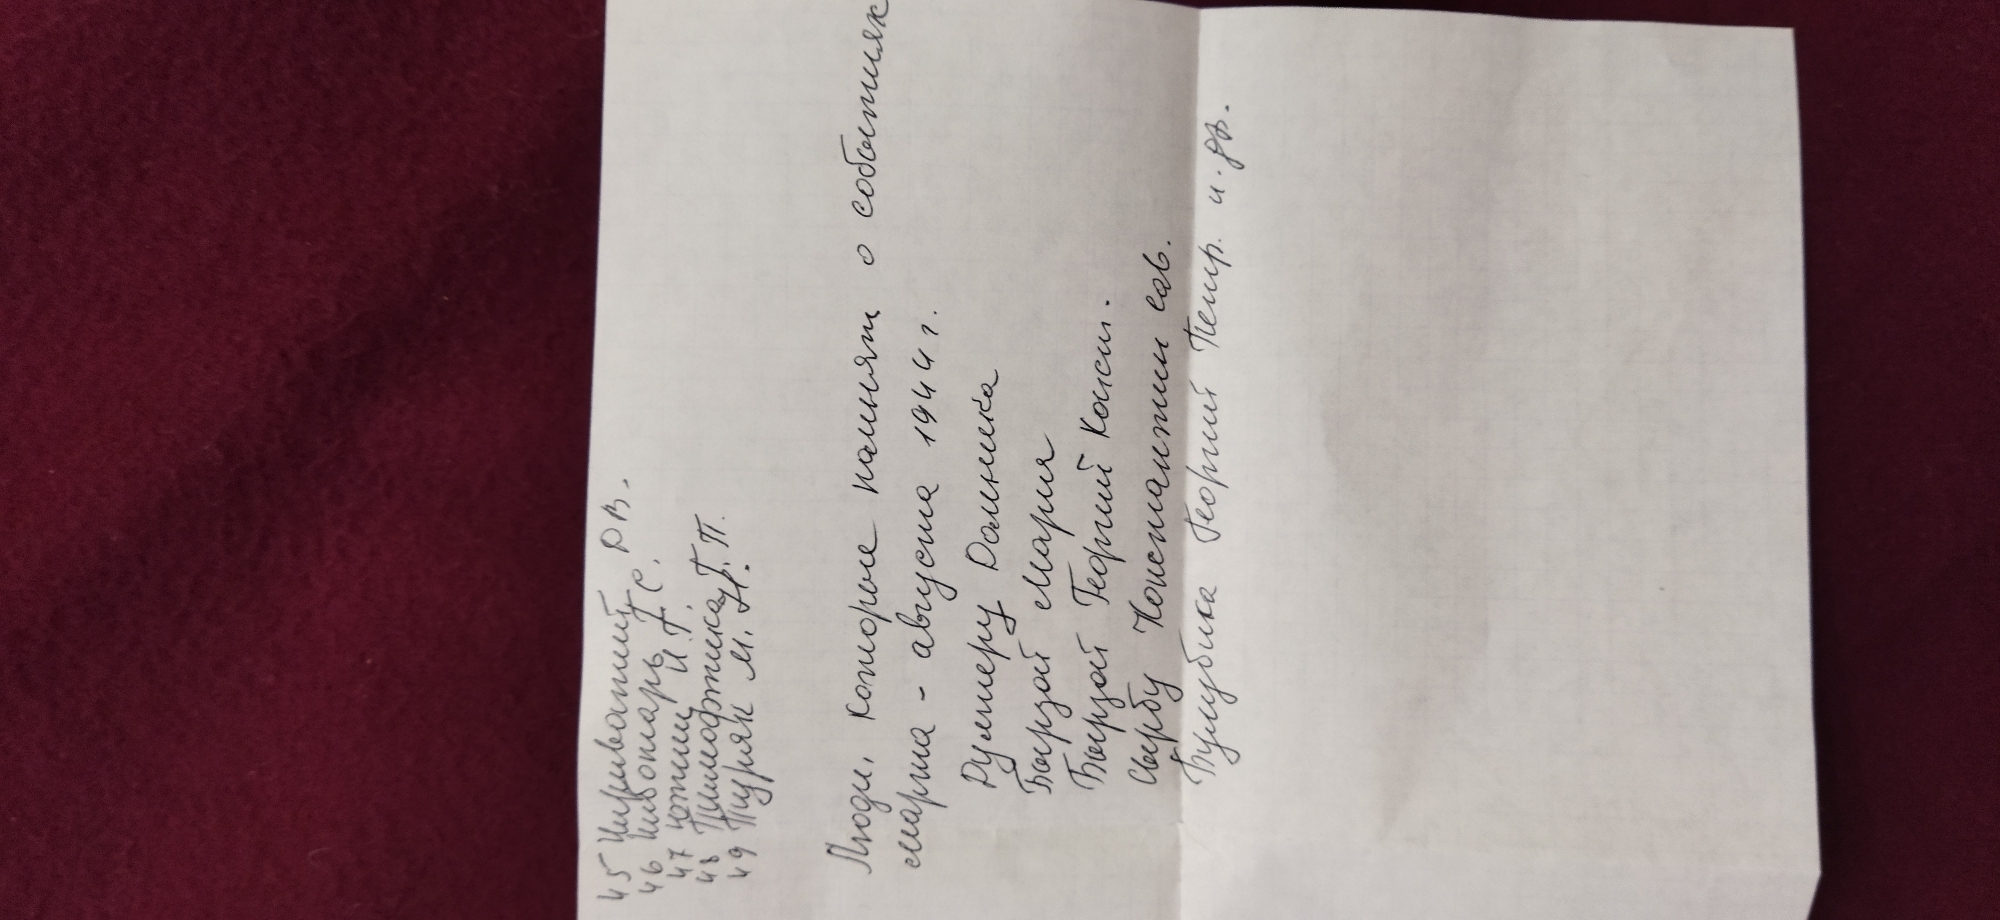 45 Шириватий Р В.
46 Шивотарь Г. С.
47 Ютиш И. Г.
48 Тимофтика Г. П.
49 Туряк М. Н.
Люди, которые помнят о событиях
марта - августа 1944 г.
Руммеру Домника
Бырзой Мария
Бырзой Георгий Конст.
Сырбу Константин Сав.
Булубика Георгий Петр. и др.